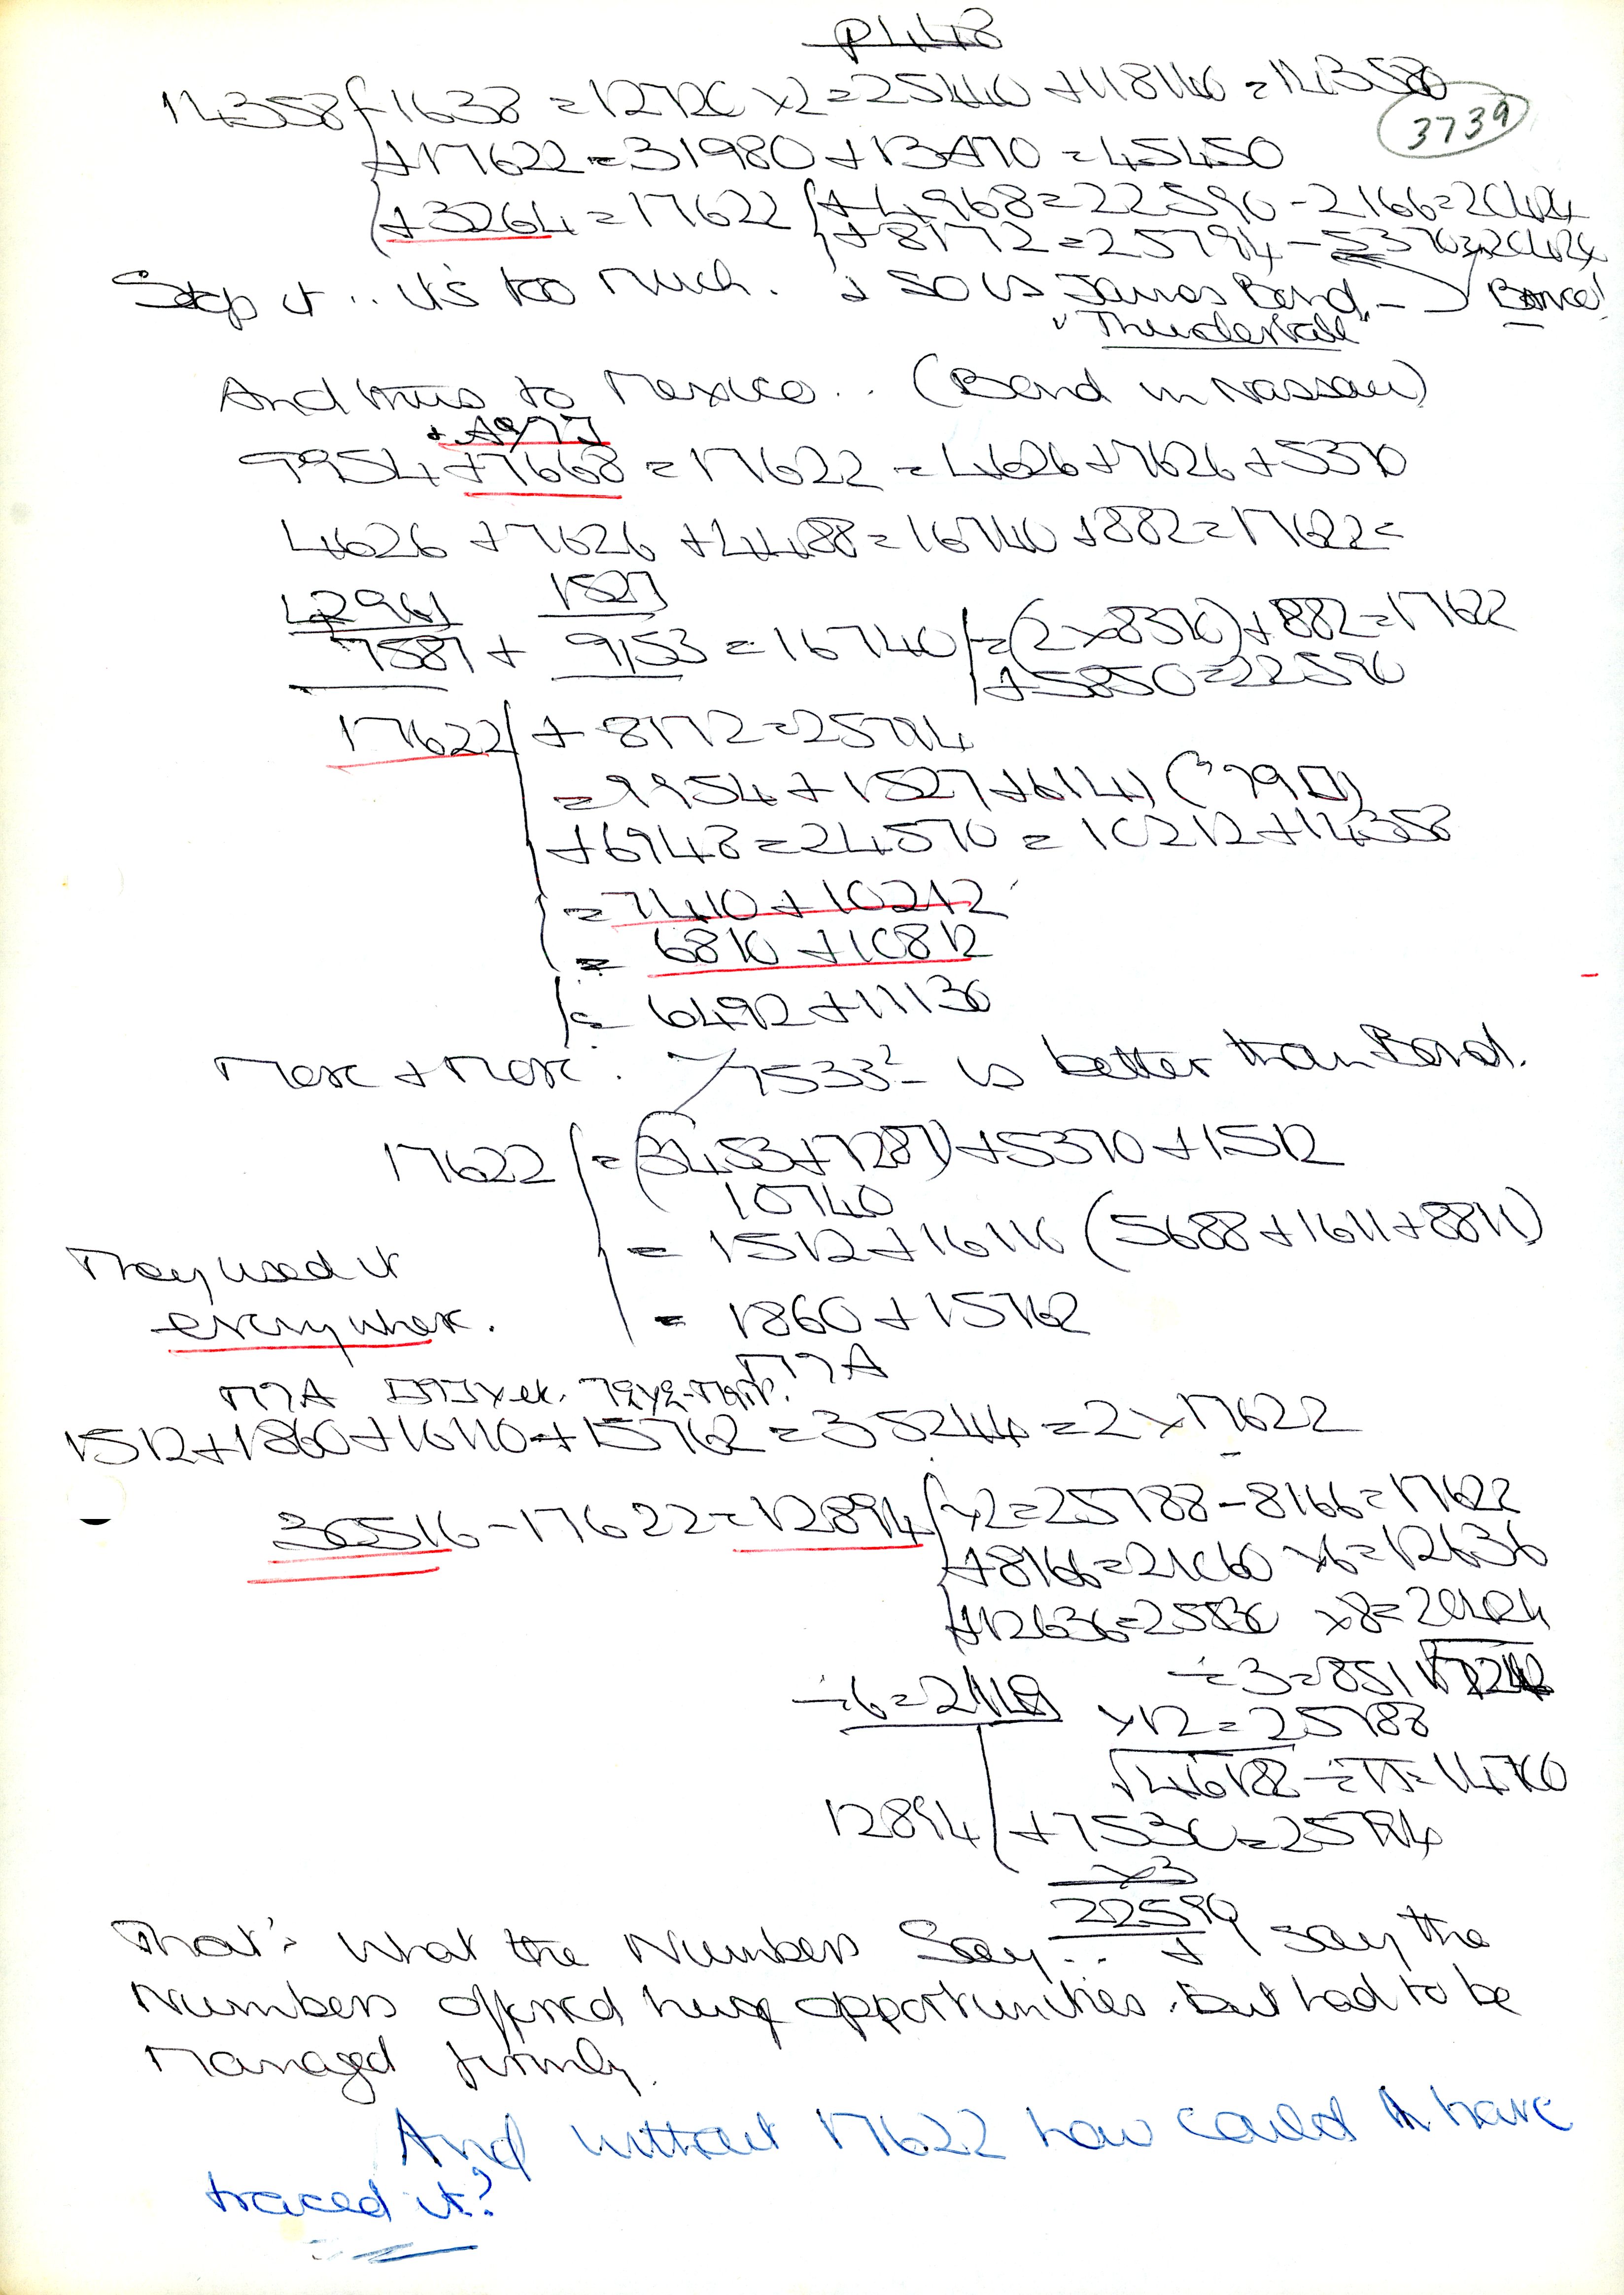 P448
14358 { -1638 = 12720 x2 = 25440 + 118140 = 143580
3739
+17622 = 31980 + 13470 = 45450
+3264 = 17622 { +4968 = 22590 - 2166 = 20424
+8172 = 25794 - 5370 = 20424
Stop it .. it's too much. & so is James Bond - Bonce!
"Thunderball"
And thus to Mexico .. (Bond in Nassau)
9954 + 7668 = 17622 = 4626 + 7626 + 5370
4626 + 7626 + 4488 = 16740 + 882 = 17622 =
1527
7587 + 9153 = 16740 { = (2 x 8370) + 882 = 17622
+5850 = 22590
17622 { + 8172 = 25794
= 9954 + 1527 + 6141
+6948 = 24570 = 10212 + 14358
= 7410 + 10212
= 6810 + 10812
= 6492 + 11130
More & More. 7533² is better than Bond.
17622 { = (3453 + 7287) + 5370 + 1512
10740
= 1512 + 16110 (5688 + 1611 + 8811)
They used it
everywhere.
= 1860 + 15762
1512 + 1860 + 16110 + 15762 = 35244 = 2 x 17622
30516 - 17622 = 12894 { x2 = 25788 - 8166 = 17622
+8166 = 21060 x6 = 12636
+12636 = 25530 x8 = 20424
÷6 = 2149 ÷3 = 851
x12 = 25788
12894 { + 7530 = 25794
x3
22590
That's what the Numbers Say .. I say the
Numbers offered huge opportunities. But had to be
Managed firmly.
And without 17622 how could I have
traced it?